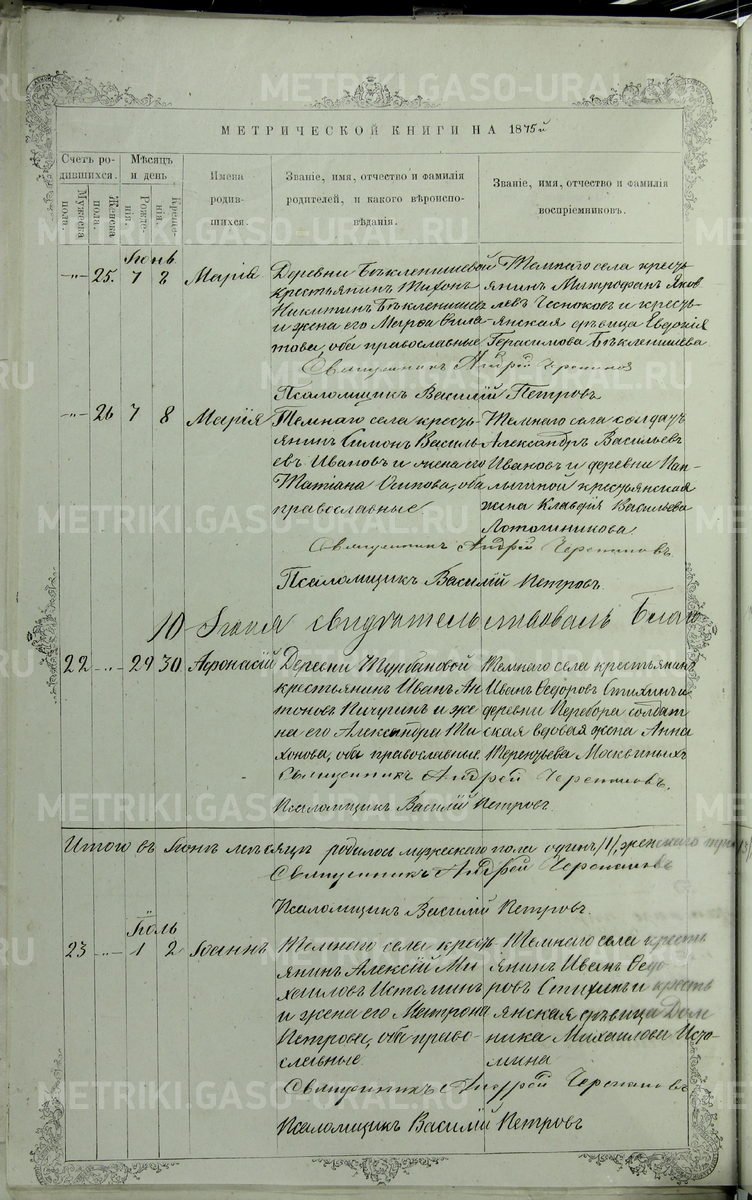 МЕТРИЧЕСКОЙ КНИГИ НА 1875й
Счетъ ро-
дившихся.
Мужеска
пола.
Женска
пола.
Мѣсяцъ
и день
Рожде-
нія
Креще-
нія
Имена
родив-
шихся.
Званіе, имя, отчество и фамилія
родителей, и какого вѣроиспо-
вѣданія.
Званіе, имя, отчество и фамилія
воспріемниковъ.
Іюнь
-"- 25. 7 8 Марія
Деревни Бѣкленищевой
крестьянинъ Тихонъ
Никитинъ Бѣкленищевъ
и жена его Марѳа Фила-
това, оба православные
Темнаго села кресть-
янинъ Митрофанъ Яков
левъ Чесноковъ и кресть-
янская дѣвица Евдокія
Герасимова Бѣкленищева
Священникъ Андрей Черепановъ
Псаломщикъ Василій Петровъ
-"- 26 7 8 Марія
Темнаго села кресть-
янинъ Симонъ Василь
евъ Ивановъ и жена его
Татіана Осипова, оба
православные
Темнаго села солдатъ
Александръ Васильевъ
Ивановъ и деревни
крестьянская
жена Клавдія Васильева
Лотошникова
Священникъ Андрей Черепановъ
Псаломщикъ Василій Петровъ.
10 Іюня свидѣтельствовалъ Благо
22 -"- 29 30 Аѳонасій
Деревни Турбановой
крестьянинъ Иванъ Ан
тоновъ Пичугинъ и же
на его Александра Ти
хонова, оба православные
Темнаго села крестьянинъ
Иванъ Ѳедоровъ Стихинъ и
деревни Перебора солдат
ская вдовая жена Анна
Терентьева Москвиныхъ
Священникъ Андрей Черепановъ.
Псаломщикъ Василій Петровъ
Итого въ Іюнѣ мѣсяцѣ родилось мужескаго пола одинъ /1/, женскаго три /3/
Священникъ Андрей Черепановъ
Псаломщикъ Василій Петровъ.
Іюль
23 -"- 1 2 Іоаннъ
Темнаго села кресть
янинъ Алексій Ми
хаиловъ Истоминъ
и жена его Матрона
Петрова, оба право-
славные
Темнаго села кресть
янинъ Иванъ Ѳедо
ровъ Стихинъ и кресть
янская дѣвица Дом
ника Михаилова Исто-
мина
Священникъ Андрей Черепановъ
Псаломщикъ Василій Петровъ
METRIKI.GASO-URAL.RU